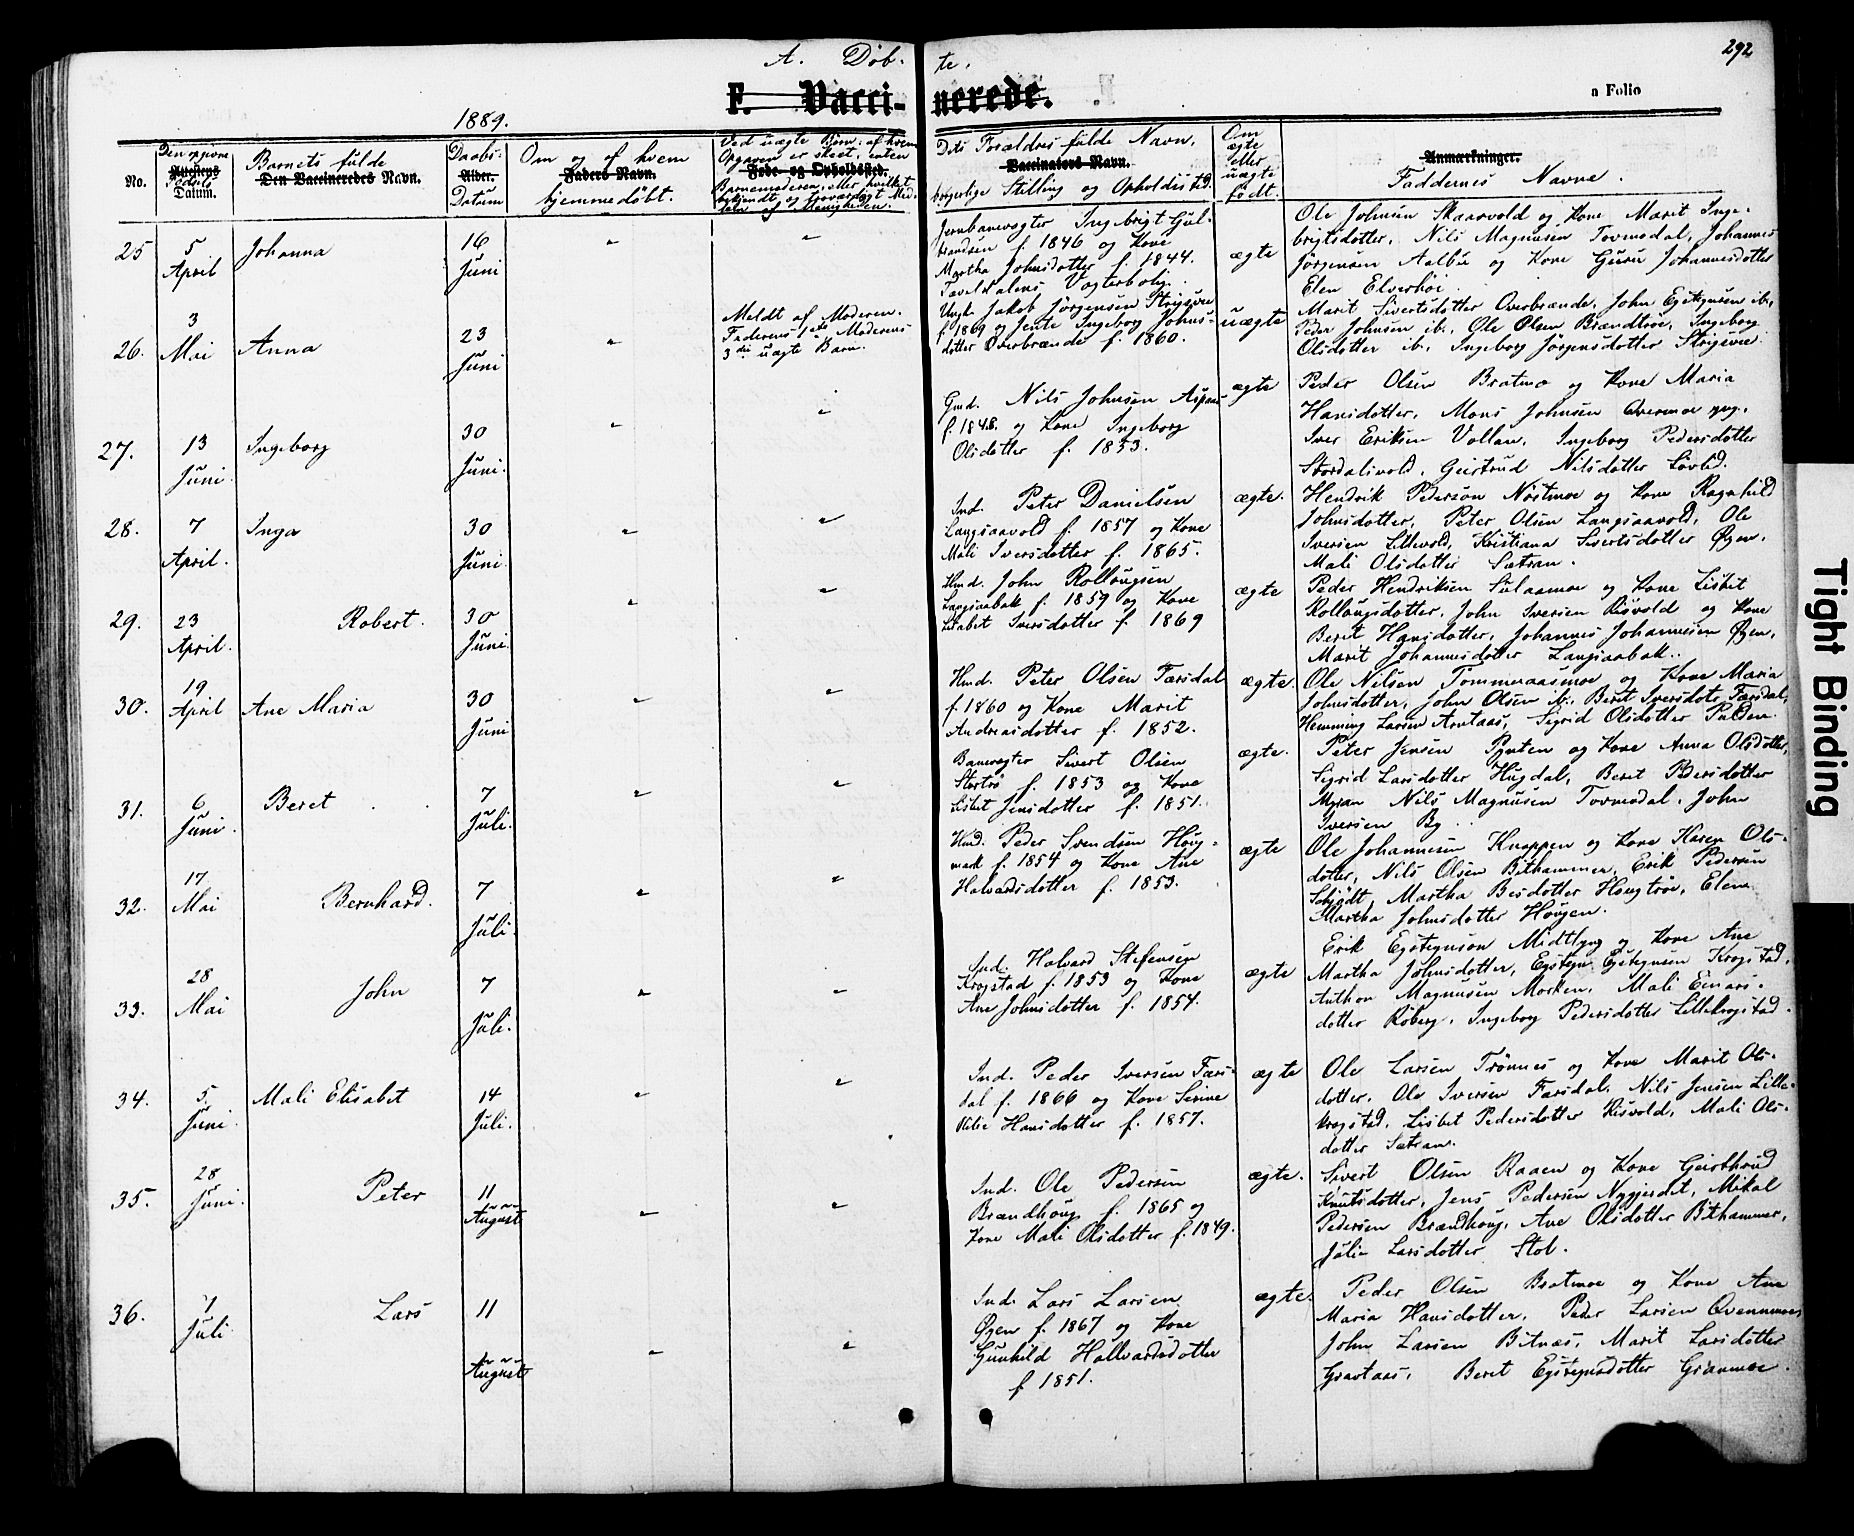 292
A. Døb-te.
F. Vacci-nerede.
a Folio
1889.
No.
Den opgivne Attestens Fødsels Datum.
Barnets fulde Den Vaccineredes Navn.
Daabs- Alder. Datum
Om og af hvem Faders Navn. hjemmedøbt.
Ved uægte Børn: af hvem
Opgaven er skeet, enten
Føde- og Opholdssted.
Barnemoderen, eller hvilket
bekjendt og troværdigt Med-
lem af Menigheden.
Dets Forældres fulde Navn,
Vaccinators Navn.
borgerlige Stilling og Opholdssted.
Om ægte eller uægte født.
Anmærkninger.
Faddernes Navne.
25 5 April Johanna 16 Juni " "
Jernbanevogter Ingebrigt Gul-
brandsen f. 1846 og Kone
Martha Johnsdotter f. 1844.
Teveldalens Vogterbolig.
ægte
Ole Johnsen Skaarvold og Kone Marit Inge-
brigtsdotter, Nils Magnusen Tovmodal, Johannes
Jörgensen Aalbu og Kone Guru Johannesdotter
Elen Elverhöi.
26. 3 Mai Anna 23 Juni "
Meldt af Moderen.
Faderens 1ste Moderens
3die uægte Barn.
Ungk. Jakob Jörgensen Strigsvee
f. 1869 og Jente Ingeborg Johns-
dotter Overbrænde f. 1860.
uægte
Marit Sivertsdotter Overbrænde, John Egstegnsen ib.,
Peder Johnsen ib., Ole Olsen Brandtröe, Ingeborg
Olsdotter ib., Ingeborg Jörgensdotter Strigsvee.
27. 13 Juni. Ingeborg 30 Juni. " "
Gmd. Nils Johnsen Aspaas
f. 1846. og Kone Ingeborg
Olsdotter f. 1853.
ægte
Peder Olsen Bratmo og Kone Maria
Hansdotter, Mons Johnsen Overmoe yng.
Iver Eriksen Vollan, Ingeborg Pedersdotter
Stordalsvold, Geirtrud Nilsdotter Lövlid.
28. 7 April. Inga 30 Juni. " "
Ind. Peter Danielsen
Langsaavold f. 1857 og Kone
Mali Iversdotter f. 1865.
ægte.
Hendrik Pederson Nöstmoe og Kone Ragnhild
Johnsdotter, Peter Olsen Langsaavold, Ole
Iversen Lillevold, Kristiana Sivertsdotter Øgen,
Mali Olsdotter Sætran.
29. 23 April. Robert. 30 Juni. " "
Hmd. John Rollougsen
Langsaabak f. 1859 og Kone
Lisabet Iversdotter f. 1869
ægte
Peder Hendriksen Sulaamoe og Kone Lisbet
Rollougsdotter, John Iversen Risvold og Kone
Beret Hansdotter, Johannes Johannesen Øgen,
Marit Johannesdotter Langsaabak.
30. 19 April Ane Maria 30 Juni " "
Hmd. Peter Olsen Færsdal
f. 1860 og Kone Marit
Andreasdotter f. 1852.
ægte.
Ole Nilsen Tömmeraasmoe og Kone Maria
Johnsdotter, John Olsen ib., Beret Iversdotr. Færsdal,
Hemming Larsen Arntaas, Sigrid Olsdotter Pulden.
31. 6 Juni. Beret 7 Juli. " "
Banevogter Sivert Olsen
Stortrö f. 1853 og Kone
Lisbet Jensdotter f. 1851.
ægte.
Peter Jensen Pynten og Kone Anna Olsdotter,
Sigrid Larsdotter Hugdal, Beret Pedersdotter
Myran Nils Magnusen Tovmodal, John
Iversen By.
32. 17 Mai Bernhard. 7 Juli. " "
Hmd. Peder Svendsen Houg-
mark f. 1854 og Kone Ane
Halvardsdotter f. 1853.
ægte
Ole Johannesen Knoppen og Kone Karen Ols-
dotter, Nils Olsen Bithammer, Erik Pedersen
Schjödt, Martha Besdotter Hougtröe, Elen
Martha Johnsdotter Hougen.
33. 28 Mai John 7 Juli. " "
Ind. Halvard Stefensen
Krogstad f. 1853 og Kone
Ane Johnsdotter f. 1854.
ægte
Erik Egstegnson Midtlyng og Kone Ane
Martha Johnsdotter, Egsteyn Egstegnsen Krogstad,
Anthon Magnusen Morken, Mali Einars-
dotter Röberg, Ingeborg Pedersdotter Lillekrogstad.
34. 5. Juni. Mali Elisabet 14 Juli. " "
Ind. Peder Iversen Færs-
dal f. 1866 og Kone Serine
Otilie Hansdotter f. 1857.
ægte
Ole Larsen Trönnes og Kone Marit Ols-
dotter, Ole Iversen Færsdal, Nils Jensen Lille-
krogstad, Lisbet Pedersdotter Risvold, Mali Ols-
dotter Sætran.
35. 28 Juni. Peter 11 August " "
Ind. Ole Pedersen
Brændhoug f. 1865 og
Kone Mali Olsdotter f. 1849.
ægte.
Sivert Olsen Raaen og Kone Geirthrud
Knutsdotter, Jens Pedersen Nygjerdet, Mikal
Pedersen Brændhoug, Ane Olsdotter Bithammer,
Julie Larsdotter Stob.
36. 7 Juli. Lars 11 August " "
Ind. Lars Larsen
Øgen f. 1867 og Kone
Gunhild Hallvardsdotter
f 1851.
ægte.
Peder Olsen Bratmoe og Kone Ane
Maria Hansdotter, Peder Larsen Ovenmoe,
John Larsen Bitnæs, Marit Larsdotter
Gravtaas, Beret Egstegnsdotter Granmoe.
Tight Binding